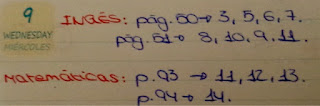 9
WEDNESDAY
MIÉRCOLES
INGÉS: pág.50→ 3, 5, 6, 7.
pág.51→ 8, 10, 9, 11.
Matemáticas: p.93 → 11, 12, 13.
p.94→ 14.